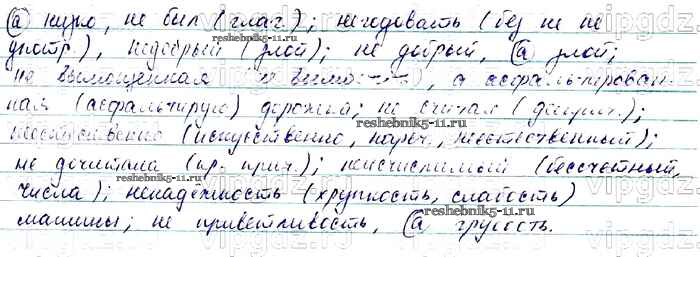 (а) нужно, не был (глаг.); негодовать (без не не
употр.), недобрый (злой); не добрый, (а) злой;
не вымощенная, а асфальтирован-
ная (асфальтирую) дорожка; не считая (дееприч.);
неестественно (искусственно, нареч., неестественный);
не дочитана (кр. прич.); неисчислимый (бессчетный,
числа); ненадёжность (хрупкость, слабость)
машины; не приветливость, (а) грубость.
reshebnik5-11.ru
reshebnik5-11.ru
reshebnik5-11.ru
reshebnik5-11.ru
vipgdz.ru